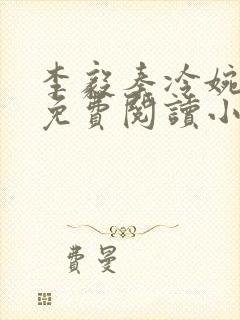 李毅秦冷婉
免費閱讀小
費曼